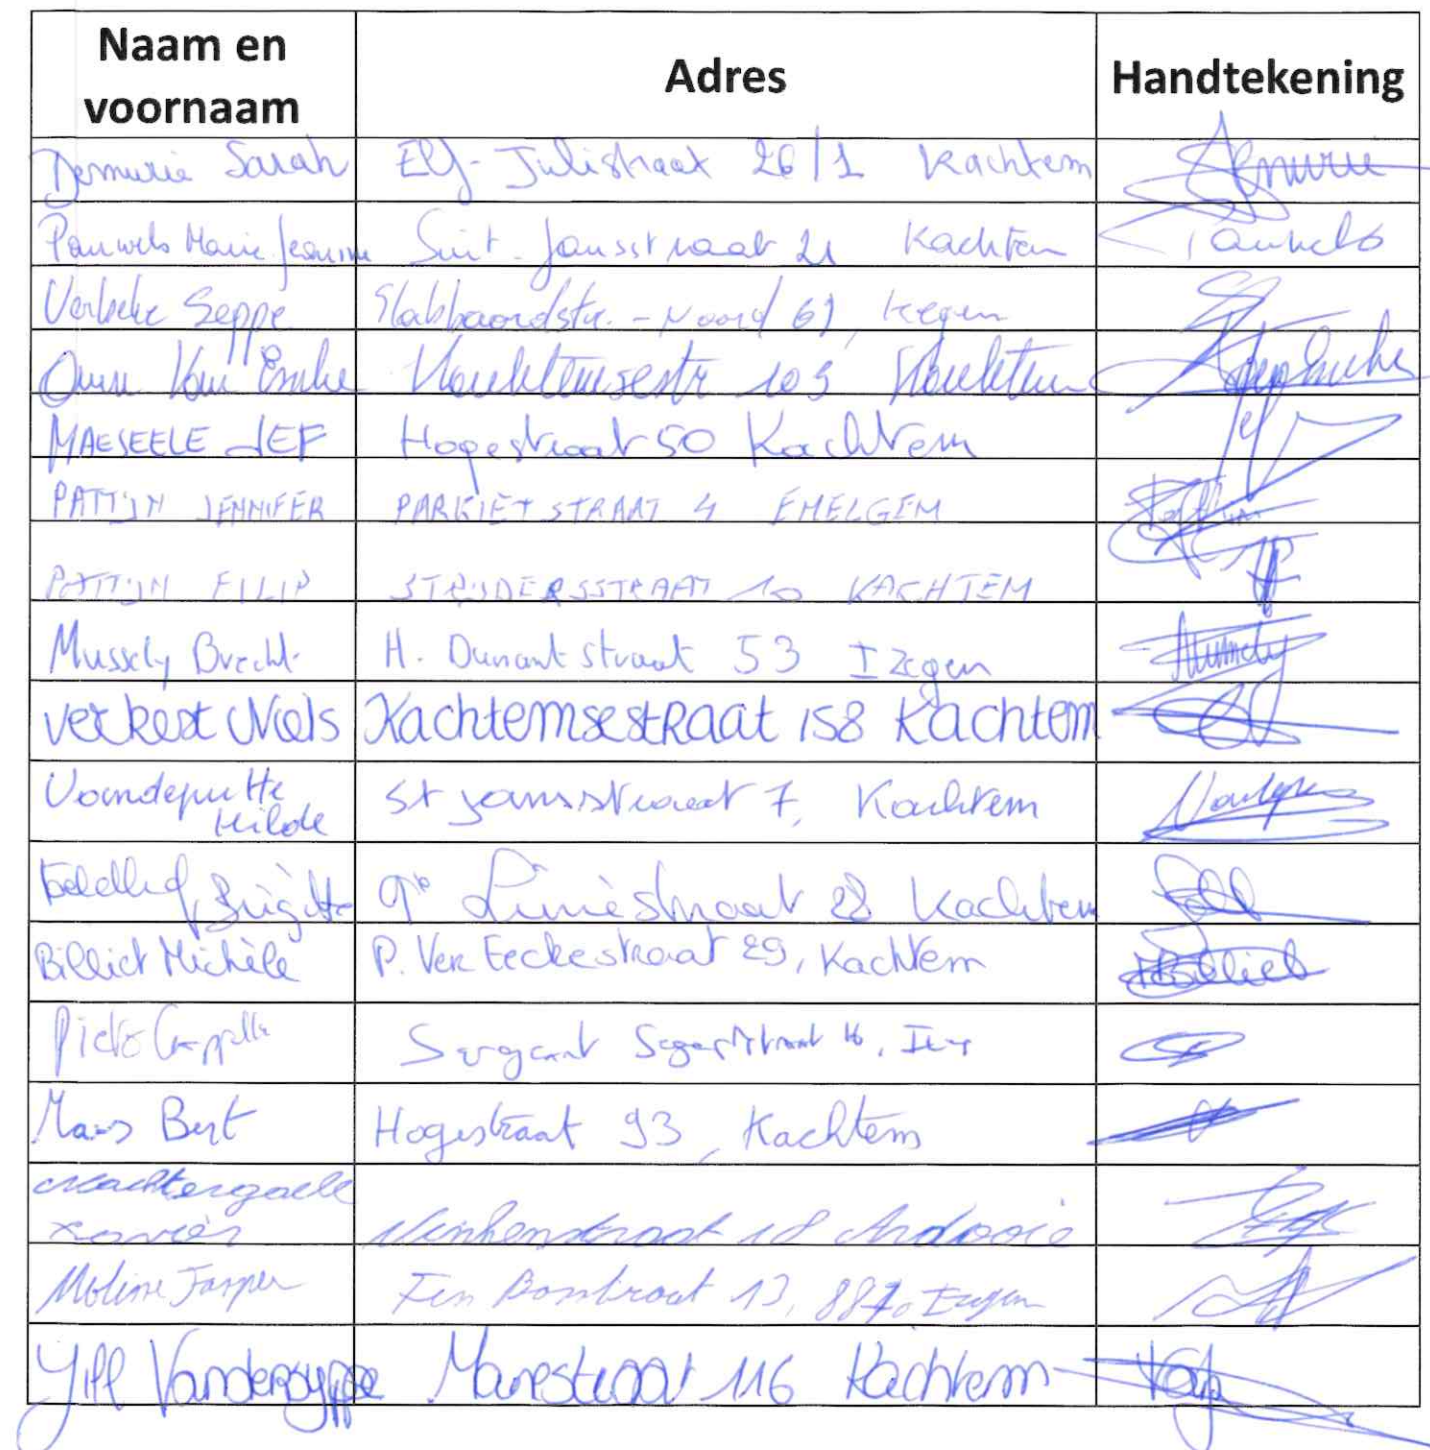 Naam en
voornaam
Adres
Handtekening
Demurie Sarah Elf-Julistraat 26/1 Kachtem
Pauwels Marie Jeanine Sint-Jansstraat 21 Kachtem Pauwels
Verbeke Seppe Slabbaardstr.-Noord 61, Izegem
103
MAESEELE JEF Hogestraat 50 Kachtem Jef
PATTIJN JENNIFER PARKIETSTRAAT 4 EMELGEM
PATTIJN FILIP STRIJDERSSTRAAT 10 KACHTEM
Mussely Brecht H. Dunantstraat 53 Izegem
Verkest Niels Kachtemsestraat 158 Kachtem
Vandeputte
Hilde
St Jansstraat 7, Kachtem
Brigitte 9e Liniestraat 28 Kachtem
Billiet Michèle P. Ver Eeckestraat 29, Kachtem Billiet
Cappelle Sergeant
Maes Bert Hogestraat 93, Kachtem
Nachtergaele
Xavier
18 Ardooie
Moline Jasper Ten Bosstraat 13, 8870 Izegem
Jill Vandergyppe 116 Kachtem